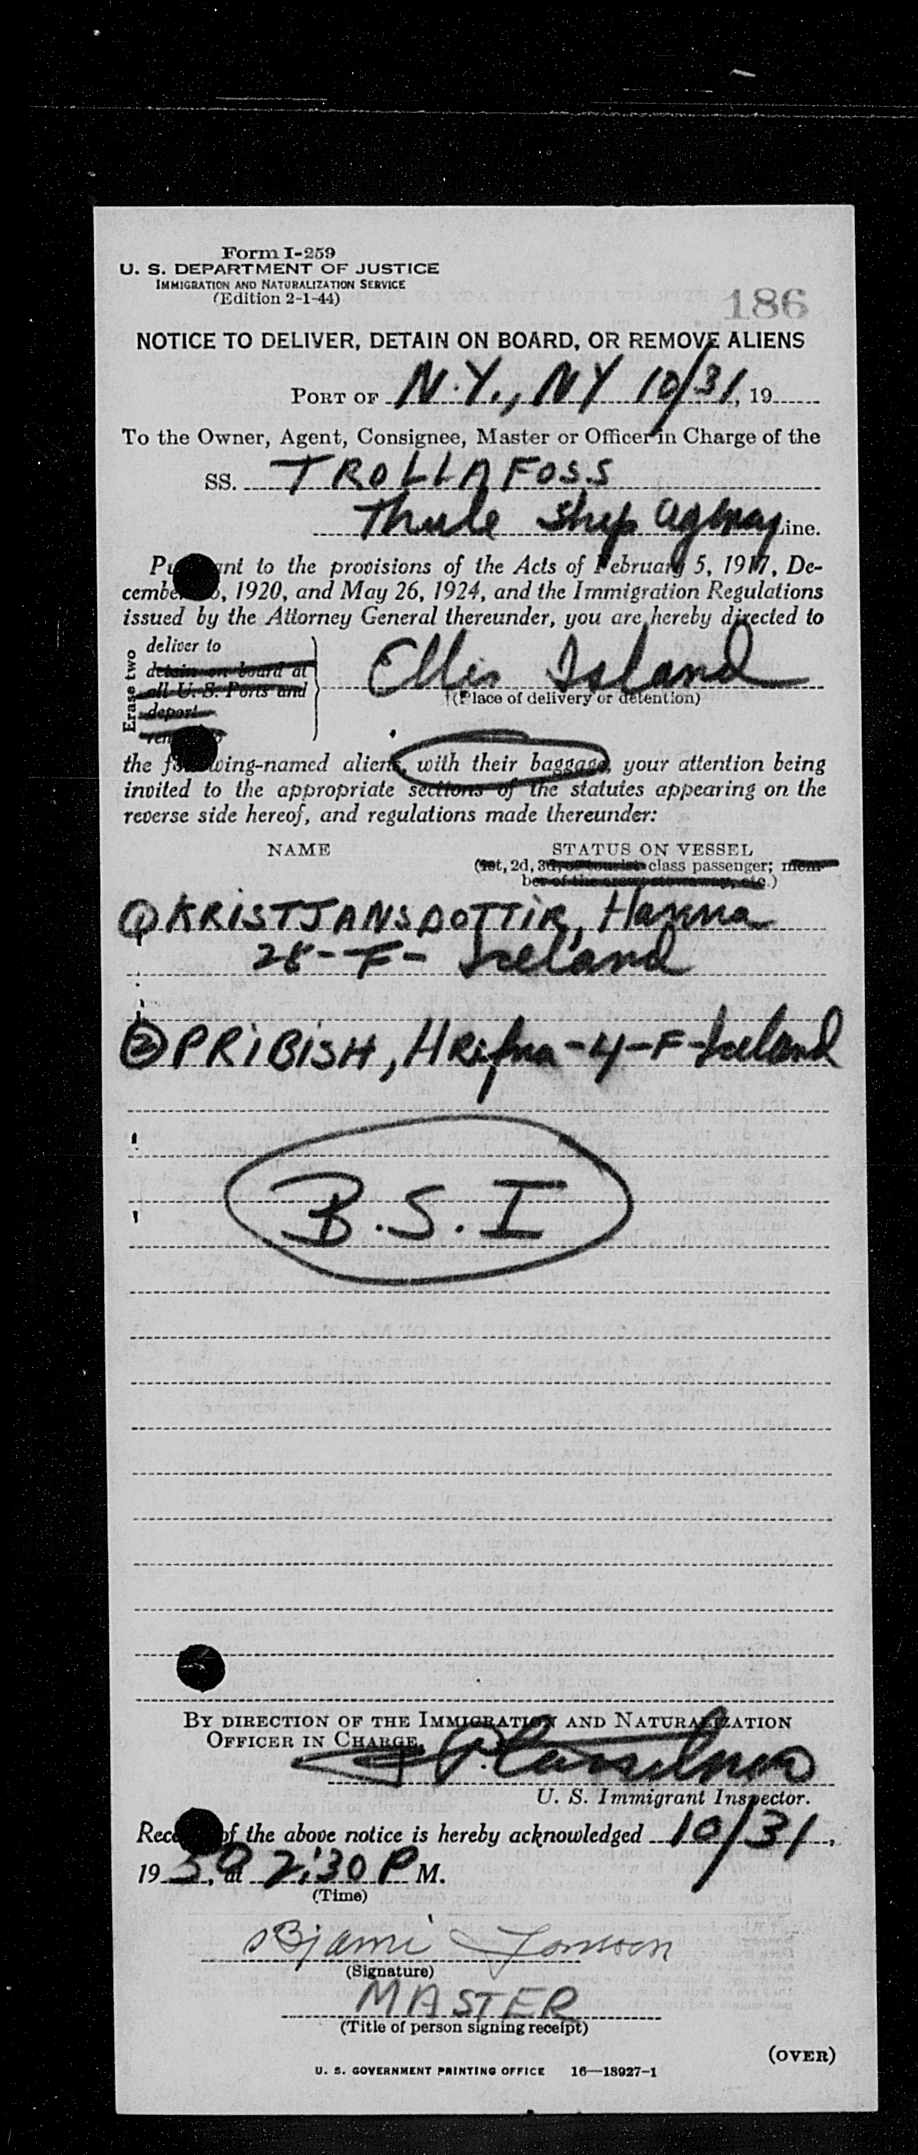 Form I-259
U. S. DEPARTMENT OF JUSTICE
IMMIGRATION AND NATURALIZATION SERVICE
(Edition 2-1-44)
186
NOTICE TO DELIVER, DETAIN ON BOARD, OR REMOVE ALIENS
PORT OF N.Y., NY 10/31, 19
To the Owner, Agent, Consignee, Master or Officer in Charge of the
SS. TROLLAFOSS
Thule Ship Agency Line.
to the provisions of the Acts of February 5, 1917, De-
1920, and May 26, 1924, and the Immigration Regulations
issued by the Attorney General thereunder, you are hereby directed to
Erase two
deliver to
detain on board at
all U. S. Ports and
deport
Ellis Island
(Place of delivery or detention)
the following-named aliens, with their baggage, your attention being
invited to the appropriate sections of the statutes appearing on the
reverse side hereof, and regulations made thereunder:
NAME STATUS ON VESSEL
(1st, 2d, 3d, or tourist class passenger; mem-
ber of the crew, stowaway, etc.)
1 KRISTJANSDOTTIR, Hanna
28-F- Iceland
2 PRIBISH, HRefna-4-F-Iceland
B.S.I
BY DIRECTION OF THE IMMIGRATION AND NATURALIZATION
OFFICER IN CHARGE,
U. S. Immigrant Inspector.
of the above notice is hereby acknowledged 10/31,
1950, at 2:30 P M.
(Time)
Bjarni Jonsson
(Signature)
MASTER
(Title of person signing receipt)
(OVER)
U. S. GOVERNMENT PRINTING OFFICE 16—18927-1